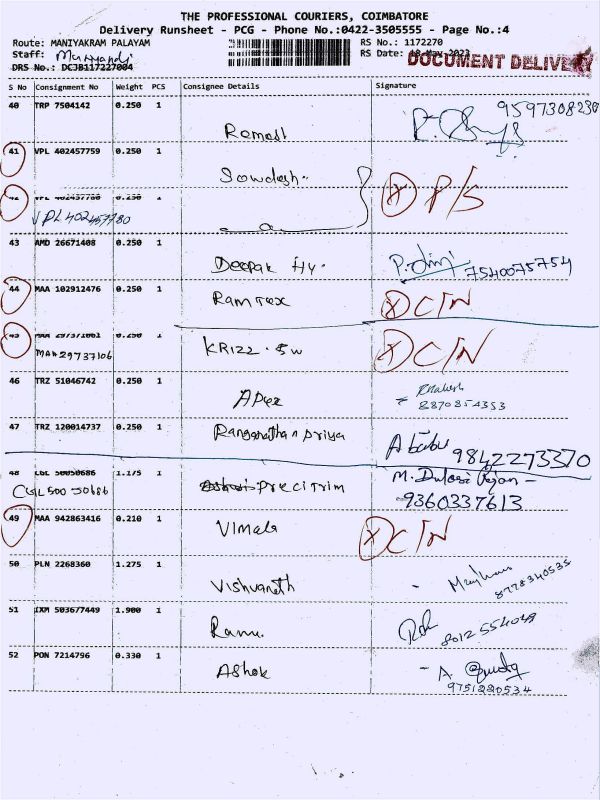 THE PROFESSIONAL COURIERS, COIMBATORE
Delivery Runsheet - PCG - Phone No.:0422-3505555 - Page No.:4
Route: MANIYAKRAM PALAYAM RS No.: 1172270
Staff: RS Date: 18-May-2023
DRS No.: DCJB117227004 DOCUMENT DELIVERY
S No Consignment No Weight PCS Consignee Details Signature
40 TRP 7504142 0.250 1 Ramesh 9597308230
41 VPL 402457759 0.250 1 Sowdesh
42 VPL 402457780 0.250 1 P/S
VPL 402457780
43 AMD 26671408 0.250 1 Deepak Hy. 7540075754
44 MAA 102912476 0.250 1 Ramtex C/N
45 MAA 297371061 0.250 1 KRIZZ. SW C/N
MAA 29737106
46 TRZ 51046742 0.250 1 Apex
8870854353
47 TRZ 120014737 0.250 1 Ranganathan priya A babu 9842273370
48 CGL 50050686 1.175 1 Precitrim M. Dulasi
CGL 500 50686 9360337613
49 MAA 942863416 0.210 1 Vimala C/N
50 PLN 2268360 1.275 1 Vishvanath 8778340535
51 IXM 503677449 1.900 1 Ramu. 8012554049
52 PON 7214796 0.330 1 Ashok - A
9751220534